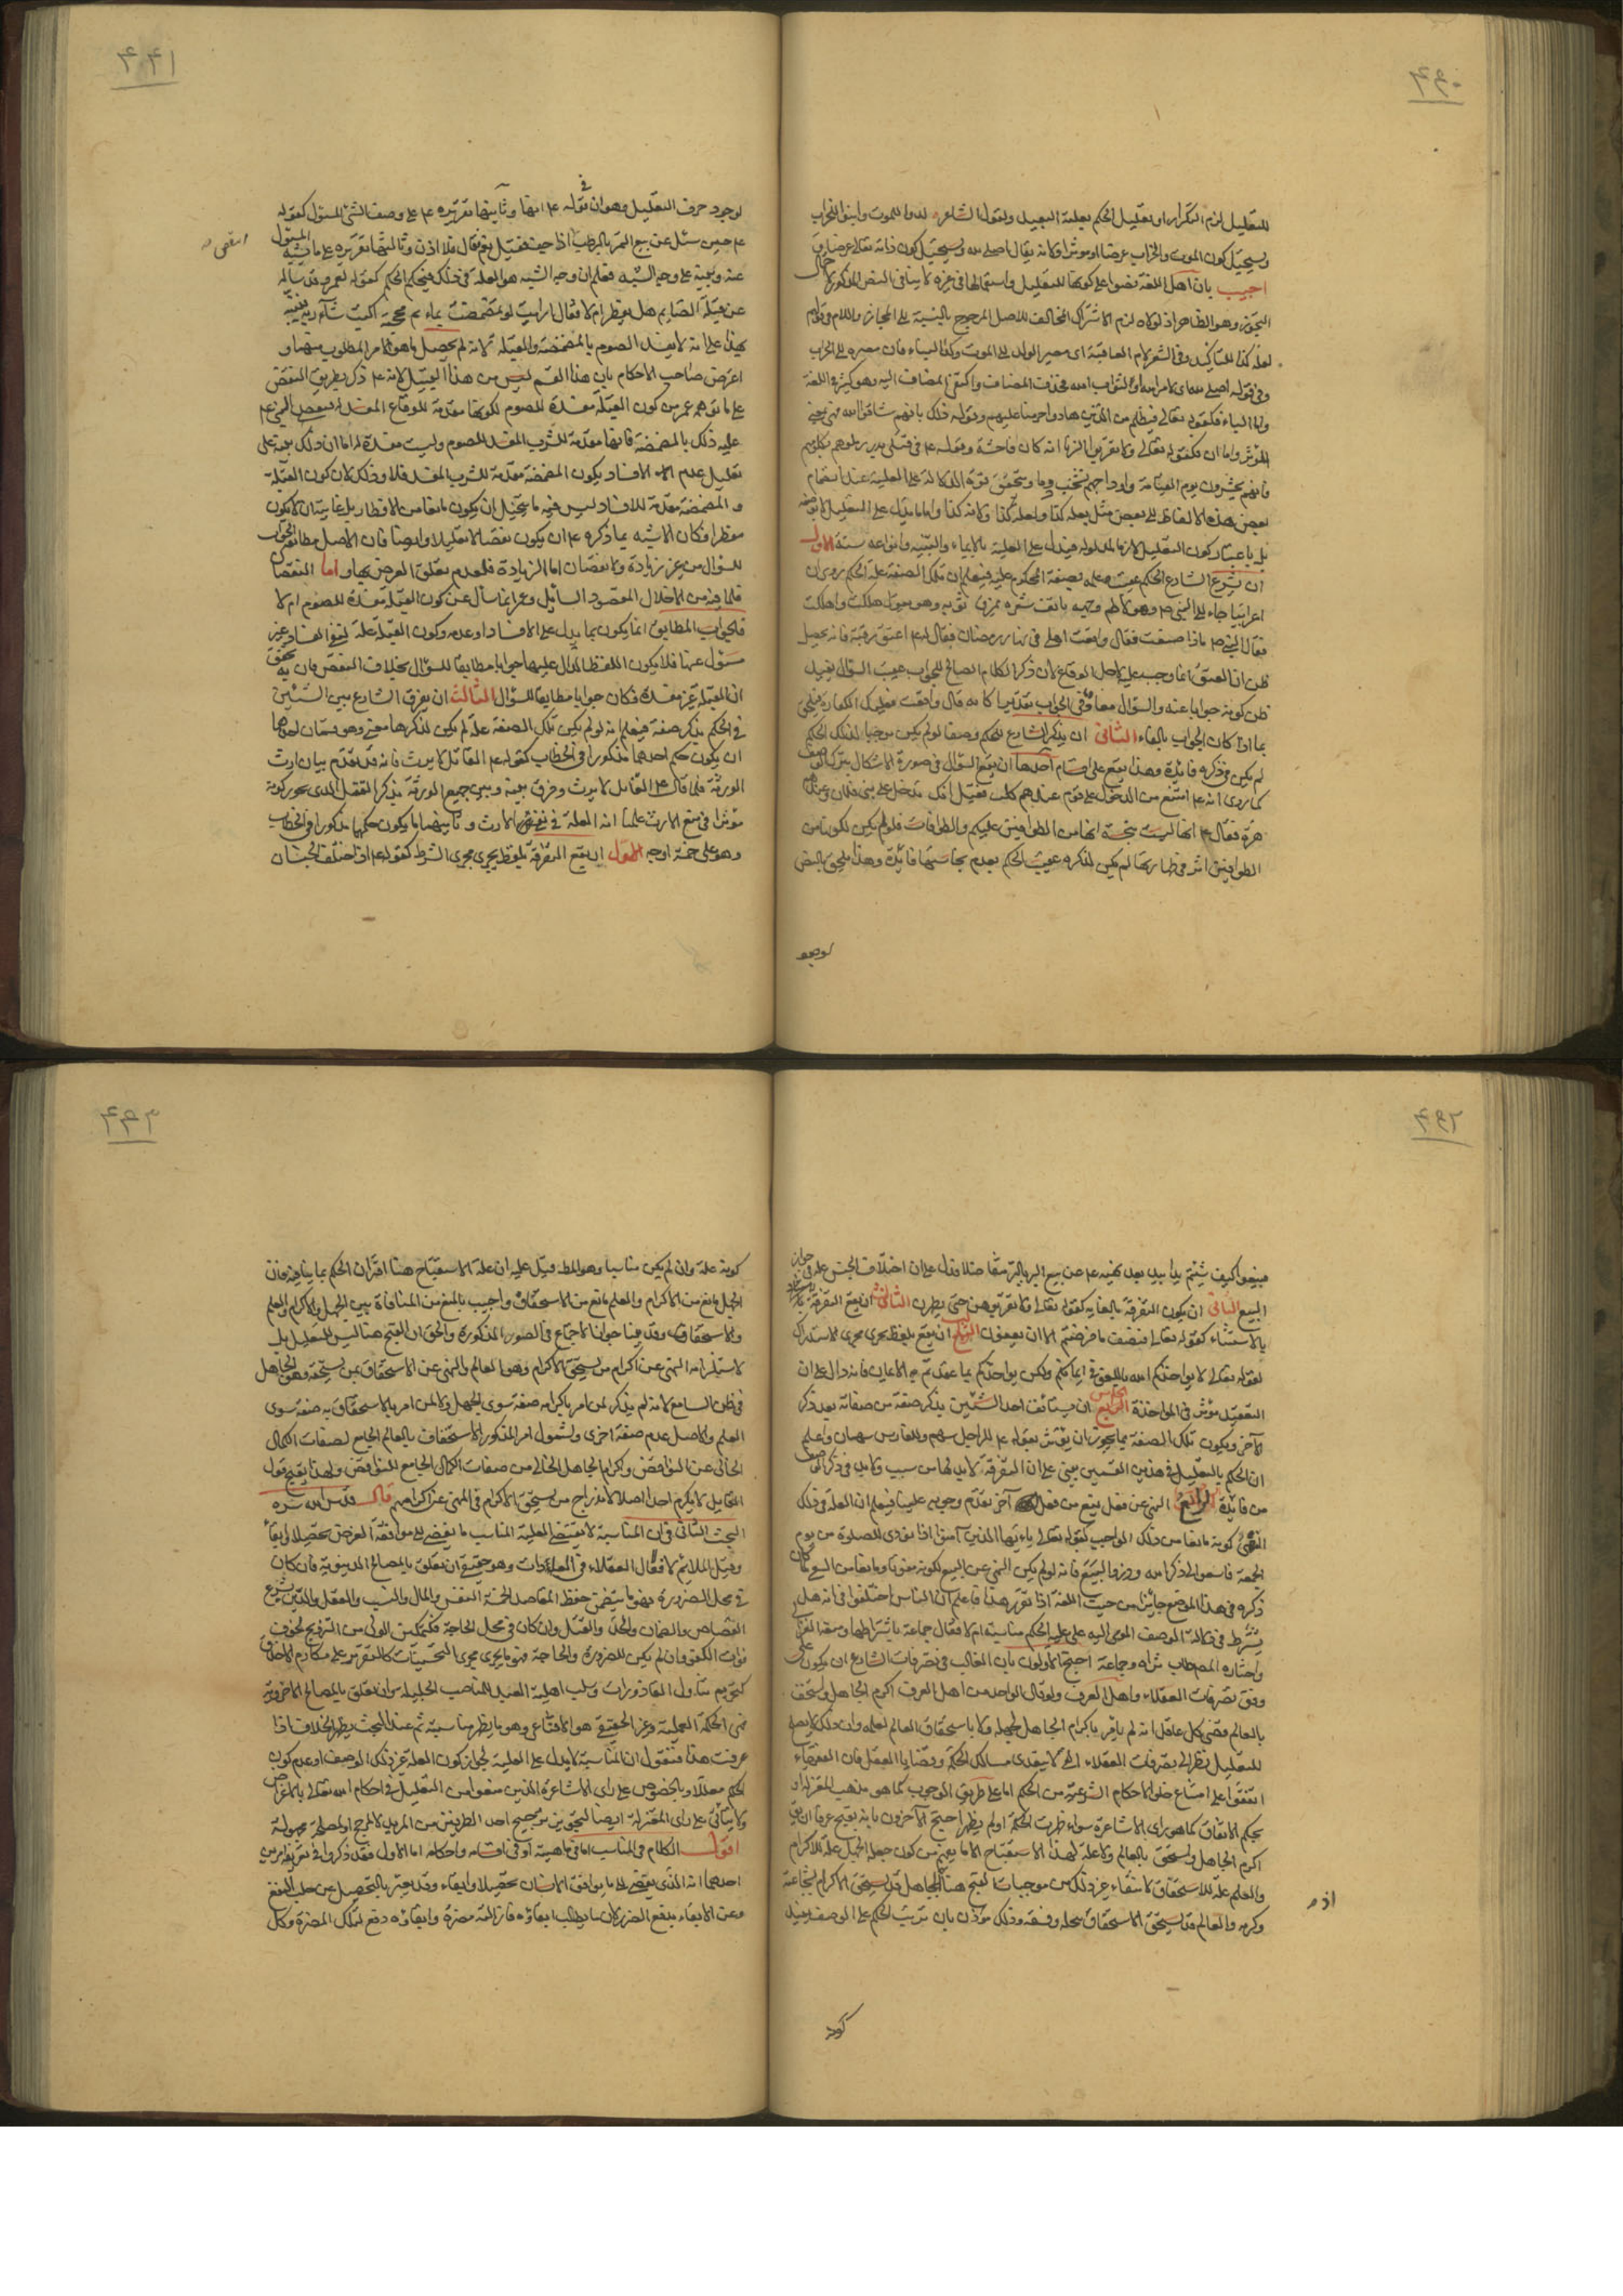 ٤٩٠
للتعليل لزم التكرار او تعليل الحكم بعلية البعيد ولقول الشاعر لدوا للموت وابنوا للخراب
ويستحيل كون الموت والخراب غرضا او موثرا ولانه يقال اصلي لله ويستحيل كون ذاته تعالى غرضا
اجيب بان اهل اللغة نصوا على كونها للتعليل واستعمالها في غيره لا ينافي النص المذكور
التجوز وهو الظاهر اذ لولاه لزم الاشتراك المخالف للاصل المرجوح بالنسبة الى المجاز واللام في
لعلة كذا للتاكيد وفي الشعر لام العاقبة اى مصير الولد الى الموت وكذا البناء فان مصيره الى الخراب
وفي قوله اصلي لله اى لامر الله او لثواب الله فحذف المضاف واكتفى بالمضاف اليه وهو كثير في اللغة
واما الباء فكقوله تعالى فبظلم من الذين هادوا حرمنا عليهم وقوله ذلك بانهم شاقوا الله فهي بمعنى
المؤثر واما ان فكقوله تعالى ولا تقربوا الزنا انه كان فاحشة وقوله ع في قتلى بدر زملوهم بكلومهم
فانهم يحشرون يوم القيامة واوداجهم تشخب دما وتحقق قوة الدلالة على العلية عند انضمام
بعض هذه الالفاظ الى بعض مثل لعله كذا ولعلة كذا ولانه كذا واما ما يدل على التعليل لا بوضعه
بل باعتبار كون التعليل لازما لمدلوله فيدل على العلية بالايماء والتنبيه وانواعه ستة الاول
ان يشرع الشارع الحكم عقيب علمه بصفة المحكوم عليه فيعلم ان تلك الصفة علة الحكم كما روى ان
اعرابيا جاء الى النبي ص وهو يلطم وجهه ينتف شعره يمزق ثوبه وهو يقول هلكت واهلكت
فقال النبي ص ماذا صنعت فقال واقعت اهلي في نهار رمضان فقال له ع اعتق رقبة فانه يحصل
ظن ان العتق انما وجب عليه لاجل الوقاع لان ذكر الكلام الصالح للجواب عقيب السؤال يفيد
ظن كونه جوابا عنه والسؤال معاد في الجواب تقديرا كانه قال واقعت فعليك الكفارة فيلحق
بما اذا كان الجواب بالفاء الثاني ان يذكر الشارع للحكم وصفا لو لم يكن موجبا لذلك الحكم
لم يكن في ذكره فائدة وهذا يقع على اقسام احدها ان يقع السؤال في صورة الاشكال بذكر الوصف
كما روى انه ع امتنع من الدخول على قوم عندهم كلب فقيل انك تدخل على بنى فلان وعندهم
هرة فقال ع انها ليست بنجسة انها من الطوافين عليكم والطوافات فلو لم يكن لكونها من
الطوافين اثر في طهارتها لم يكن لذكره عقيب الحكم بعدم نجاستها فائدة وهذا ملحق بالنص
لوجو
٤٩١
لوجود حرف التعليل وهو ان في قوله ع انها وثانيها تقريره ع على وصف الشئ المسؤل كقوله
ع حين سئل عن بيع التمر بالرطب اذا جف فقيل نعم فقال فلا اذن وثالثها تقريره على ما يشبه المسؤل
عنه وتنبيه على وجه الشبه فيعلم ان وجه الشبه هو العلة في ذلك الحكم كقوله لعمر وقد ساله
عن قبلة الصايم هل يفطر ام لا فقال ارايت لو تمضمضت بماء ثم مججته اكنت شاربه فنبه
بهذا على انه لا يفسد الصوم بالمضمضة والقبلة لانه لم يحصل ما هو الامر المطلوب منهما و
اعترض صاحب الاحكام بان هذا القسم ليس من هذا القبيل لانه ع ذكره بطريق النقض
على ما توهمه عمر من كون القبلة مفسدة للصوم لكونها مقدمة للوقاع المفسد فنقض النبي ع
عليه ذلك بالمضمضة فانها مقدمة للشرب المفسد للصوم وليست مفسدة له اما ان ذلك تنبيه على
تعليل عدم الافساد بكون المضمضة مقدمة للشرب المفسد فلا وذلك لان كون القبلة
والمضمضة مقدمة للافساد ليس فيه ما يتخيل ان يكون مانعا من الافطار بل غايته ان لا يكون
مفطرا فكان الاشبه بما ذكره ع ان يكون نقضا لا تعليلا وايضا فان الاصل مطابقة الجواب
للسؤال من غير زيادة ولا نقصان اما الزيادة فلعدم تعلق الغرض بها واما النقصان
فلما فيه من الاخلال بمقصود السائل وعمر انما سأل عن كون القبلة مفسدة للصوم ام لا
فالجواب المطابق انما يكون بما يدل على الافساد او عدمه وكون القبلة علة لنفى الفساد غير
مسؤل عنها فلا يكون اللفظ الدال عليها جوابا مطابقا للسؤال بخلاف النقض فان به تحقق
ان القبلة غير مفسدة فكان جوابا مطابقا للسؤال الثالث ان يفرق الشارع بين الشيئين
في الحكم بذكر صفة فيعلم انه لو لم يكن تلك الصفة علة لم يكن لذكرها معنى وهو قسمان احدهما
ان يكون حكم احدهما مذكورا في الخطاب كقوله ع القاتل لا يرث فانه قد تقدم بيان ارث
الورثة فلما قال ع القاتل لا يرث وفرق بينه وبين جميع الورثة بذكر القتل الذى يجوز كونه
مؤثرا في منع الارث علمنا انه العلة في نفى الارث وثانيهما ما يكون حكمهما مذكورا في الخطاب
وهو على خمسة اوجه الاول ان تقع التفرقة بلفظ يجرى مجرى الشرط كقوله ع اذا اختلف الجنسان
٤٩٢
فبيعوا كيف شئتم يدا بيد بعد نهيه ع عن بيع البر بالبر متفاضلا فدل على ان اختلاف الجنس علة في جواز
البيع الثاني ان يكون التفرقة بالغاية كقوله تعالى ولا تقربوهن حتى يطهرن الثالث ان تقع التفرقة
بالاستثناء كقوله تعالى فنصف ما فرضتم الا ان يعفون الرابع ان تقع بلفظ يجرى مجرى الاستدراك
كقوله تعالى لا يؤاخذكم الله باللغو في ايمانكم ولكن يؤاخذكم بما عقدتم الايمان فانه دال على ان
التعقيد مؤثر في المؤاخذة الخامس ان يستأنف احد الشيئين بذكر صفة من صفاته بعد ذكر
الآخر ويكون تلك الصفة مما يجوز ان يؤثر كقوله ع للراجل سهم وللفارس سهمان واعلم
ان الحكم بالتعليل في هذين القسمين مبنى على ان التفرقة لا بد لها من سبب ولا بد في ذكر الوصف
من فائدة الرابع النهى عن فعل يمنع من فعل آخر تقدم وجوبه علينا فيعلم ان العلة في ذلك
النهى كونه مانعا من ذلك الواجب كقوله تعالى يا ايها الذين آمنوا اذا نودى للصلوة من يوم
الجمعة فاسعوا الى ذكر الله وذروا البيع فانه لو لم يكن النهى عن البيع لكونه مفوتا ومانعا من السعى لما كان
ذكره في هذا الموضع جائزا من حيث اللغة اذا تقرر هذا فاعلم ان الناس اختلفوا في انه هل
يشترط في دلالة الوصف المومى اليه على علية الحكم مناسبته ام لا فقال جماعة باشتراطها ومنعه الغزالي
واختاره المصنف طاب ثراه وجماعة احتج الاولون بان الغالب في تصرفات الشارع ان يكون على
وفق تصرفات العقلاء واهل العرف ولو قال الواحد من اهل العرف اكرم الجاهل واستخف
بالعالم قضى كل عاقل انه لم يامر باكرام الجاهل لجهله ولا باستخفاف العالم لعلمه وان ذلك لا يصلح
للتعليل نظرا الى تصرفات العقلاء التي لا يتعدى مسالك الحكمة وقضايا العقل فان الفقهاء
اتفقوا على امتناع خلو الاحكام الشرعية من الحكم اما على طريق الوجوب كما هو مذهب المعتزلة او
بحكم الاتفاق كما هو راى الاشاعرة سواء ظهرت الحكمة او لم يظهر احتج الآخرون بانه يقبح عرفا ان يق
اكرم الجاهل واستخف بالعالم ولا علة لهذا الاستقباح الا ما يفهم من كون جعل الجهل علة للاكرام
والعلم علة للاستخفاف لانتفاء غير ذلك من موجبات القبح هنا اذ الجاهل قد يستحق الاكرام لشجاعته
وكرمه والعالم قد يستحق الاستخفاف لبخله وفسقه وذلك مؤذن بان ترتيب الحكم على الوصف يفيد
كونه
٤٩٣
كونه علة وان لم يكن مناسبا وهو المط فقيل عليه ان علة الاستقباح هنا اقتران الحكم بما ينافيه فان
الجهل مانع من الاكرام والعلم مانع من الاستخفاف واجيب بالمنع من المنافاة بين الجهل والاكرام والعلم
والاستخفاف وقد بينا جواز الاجتماع في الصور المذكورة والحق ان القبح هنا ليس للتعليل بل
لاستلزامه النهى عن اكرام من يستحق الاكرام وهو العالم والنهى عن الاستخفاف بمن يستحقه وهو الجاهل
في ظن السامع لانه لم يذكر لمن امر باكرامه صفة سوى الجهل ولا لمن امر بالاستخفاف به صفة سوى
العلم والاصل عدم صفة اخرى ولشمول امر المذكور الاستخفاف بالعالم الجامع لصفات الكمال
الخالي عن النواقص واكرام الجاهل الخالي من صفات الكمال الجامع للنواقص ولهذا يقبح قول
القايل لا يكرم احدا اصلا لاندراج من يستحق الاكرام في النهى عن اكرامهم قال قدس الله سره
البحث الثاني في ان المناسبة لا تقتضى العلية المناسب ما يفضى الى موافقة الغرض تحصيلا او ابقاء
وقيل الملائم لافعال العقلاء في العادات وهو حقيقى ان تعلق بالمصالح الدنيوية فان كان
في محل الضرورة فهو ما يتضمن حفظ المقاصد الخمسة النفس والمال والنسب والعقل والدين بشرع
القصاص والضمان والحد والقتل وان كان في محل الحاجة فكتمكين الولي من التزويج لخوف
فوات الكفو وان لم يكن للضرورة والحاجة فهو ما يجرى مجرى التحسينات كالتقرير على مكارم الاخلاق
كتحريم تناول القاذورات وسلب اهلية العبيد للمناصب الجليلة وان تعلق بالمصالح الاخروية
فهى الحكمة العملية وغير الحقيقى هو الاقناعى وهو ما يظن مناسبته ثم عند البحث يظهر الخلاف اذا
عرفت هذا فنقول ان المناسبة لا يدل على العلية لجواز كون العلة غير ذلك الوصف او عدم كون
الحكم معللا وبالخصوص على راى الاشاعرة الذين منعوا من التعليل في احكام الله تعالى بالاغراض
ولا يتأتى على راى المعتزلة ايضا لتجويز ترجيح احد الطرفين من المريد لا لمرجح او لمصلحة مجهولة
اقول الكلام في المناسب اما في ماهيته او في اقسامه واحكامه اما الاول فقد ذكروا في تعريفه امرين
احدهما انه الذى يفضى الى ما يوافق الانسان تحصيلا وابقاء وقد يعبر بالتحصيل عن جلب النفع
وعن الابقاء بدفع الضرر لان ما يطلب ابقاؤه فازالته مضرة وابقاؤه دفع لتلك المضرة وكل